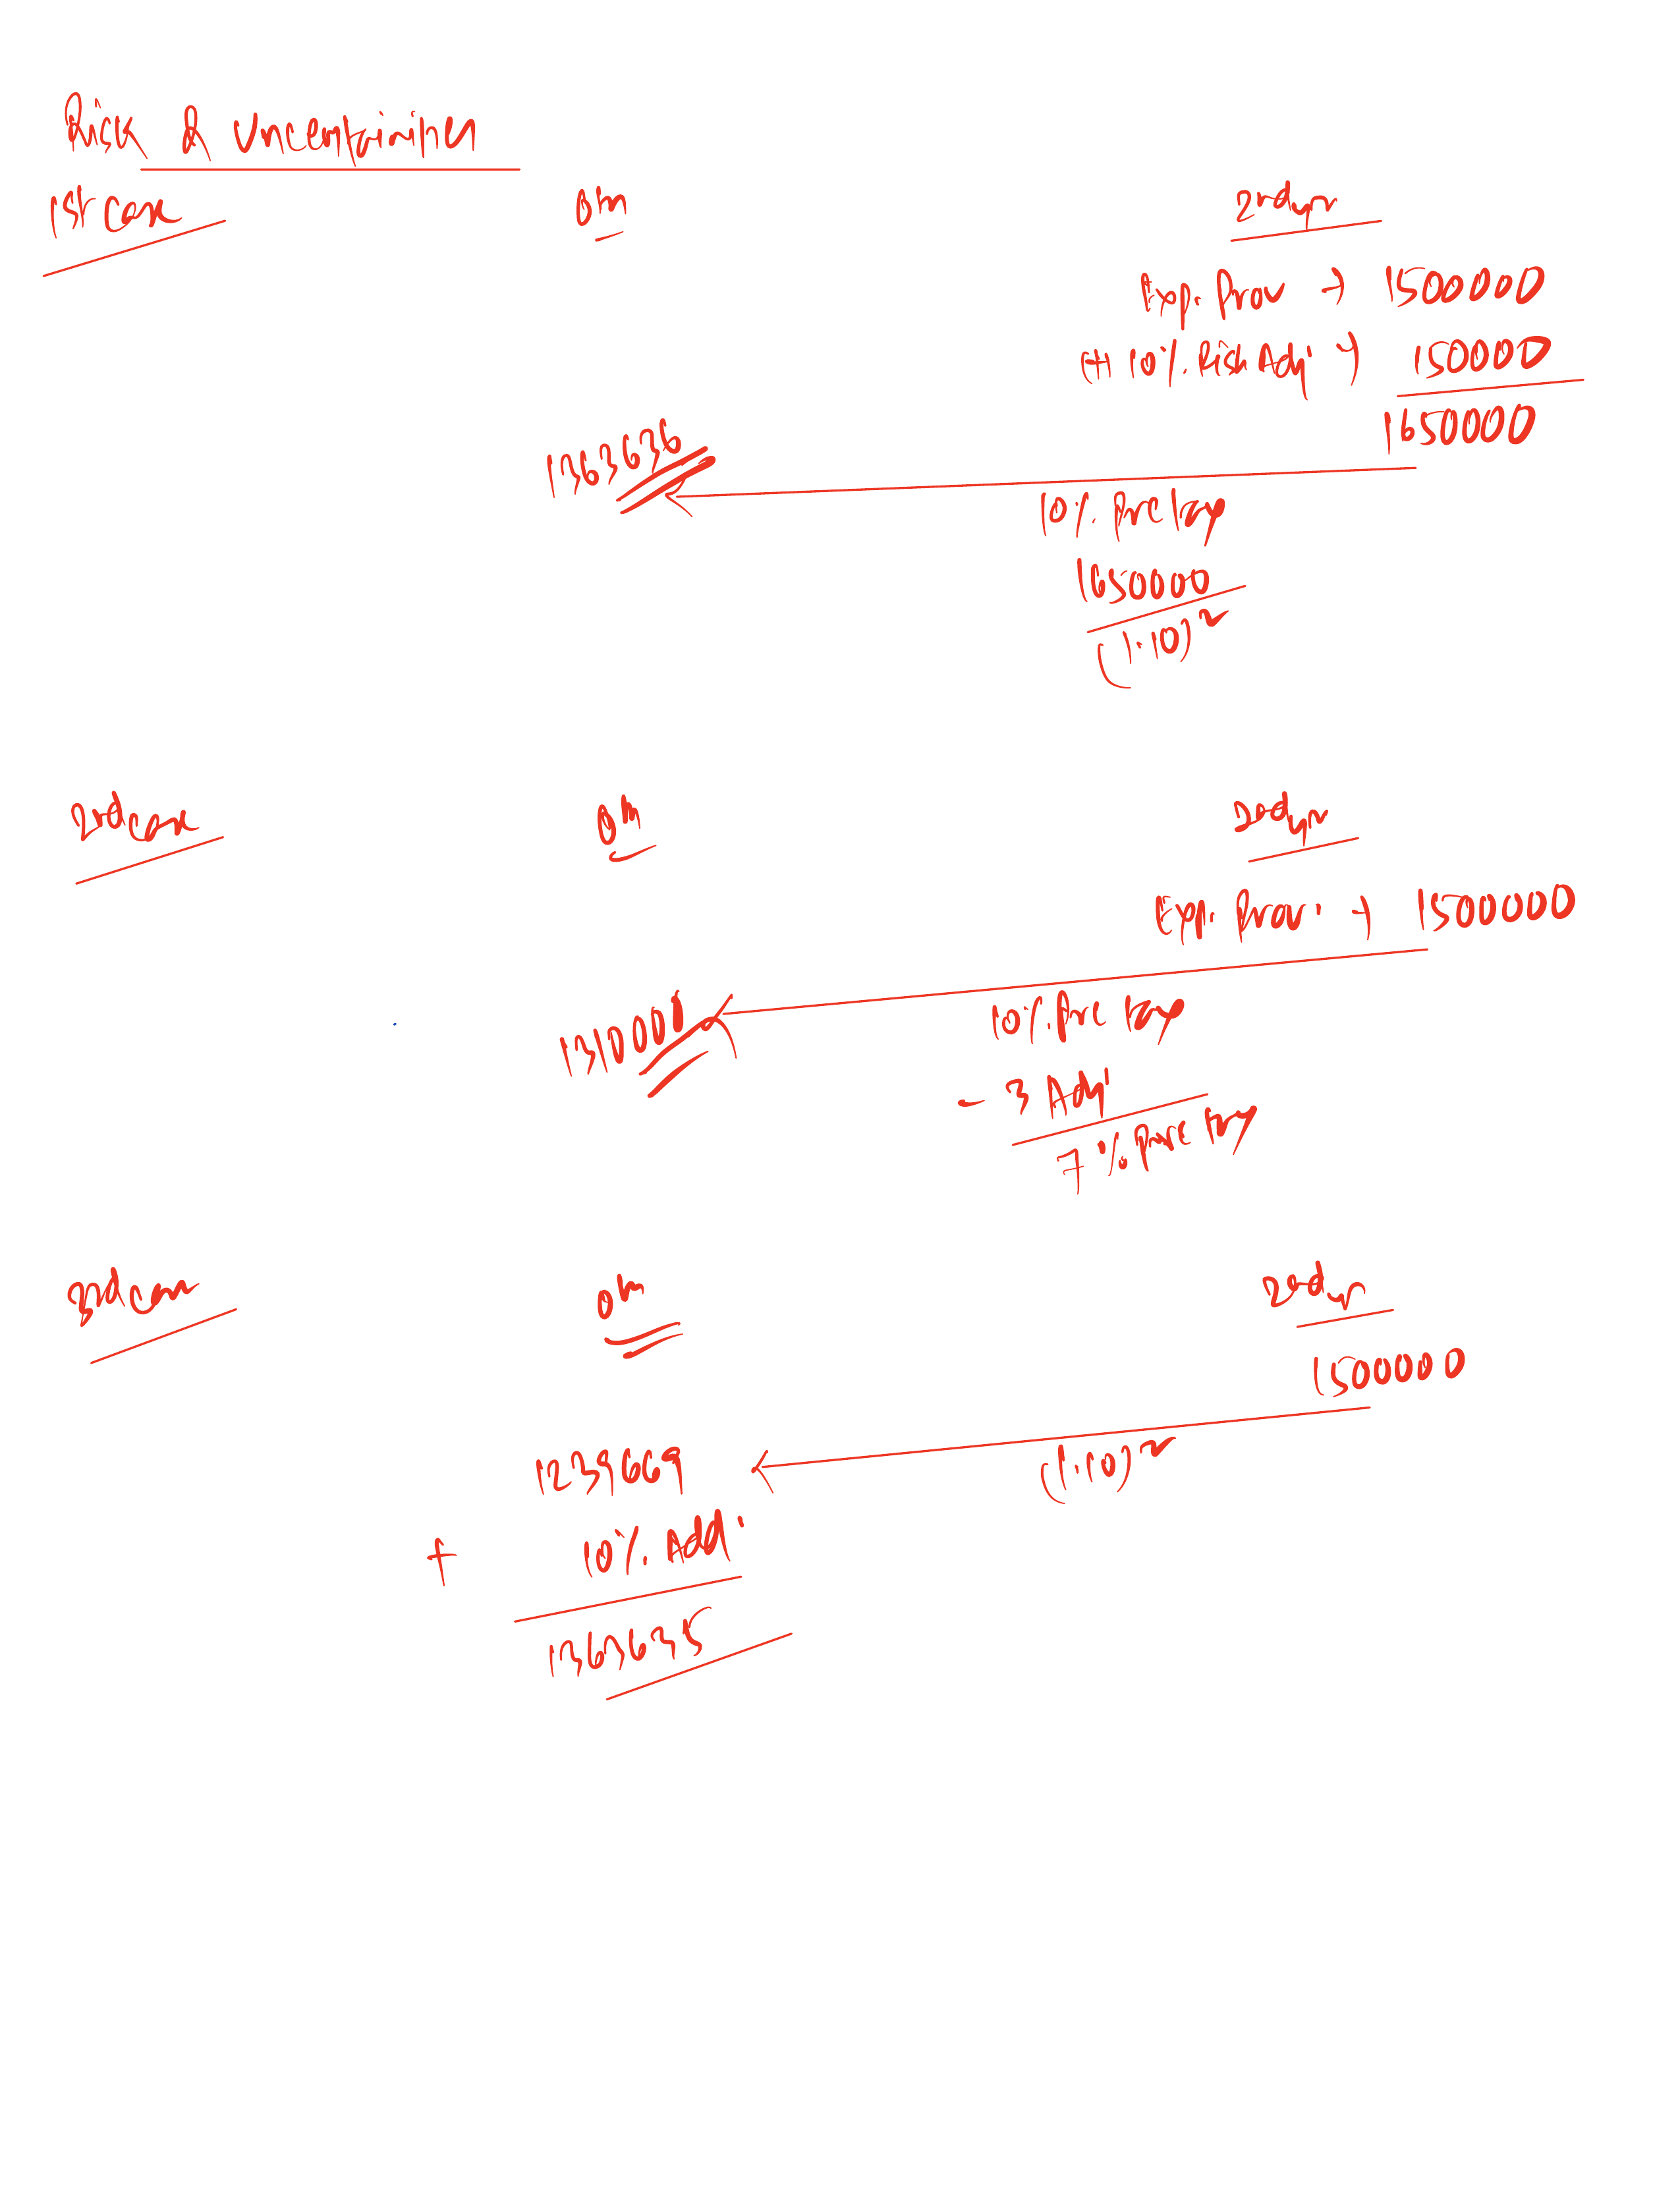 Risk & uncertainties
1st Case 0th 2nd yr
Exp. Prov → 1500000
(+ 10%. Risk Adj. → 150000
1650000
1363636
10%. Pre tax
1650000
(1.10)²
2nd case 0th 2nd yr
Exp. Prov. → 1500000
1310001
10%. Pre tax
- 3 Adj
7% Pre tax
3rd case 0th 2nd yr
1500000
1239669
(1.10)²
+ 10%. Add.
1363635